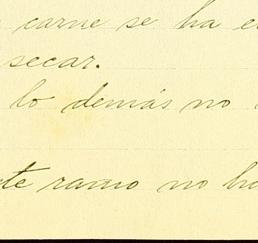 carne se ha
secar.
lo demás no
te ramo no